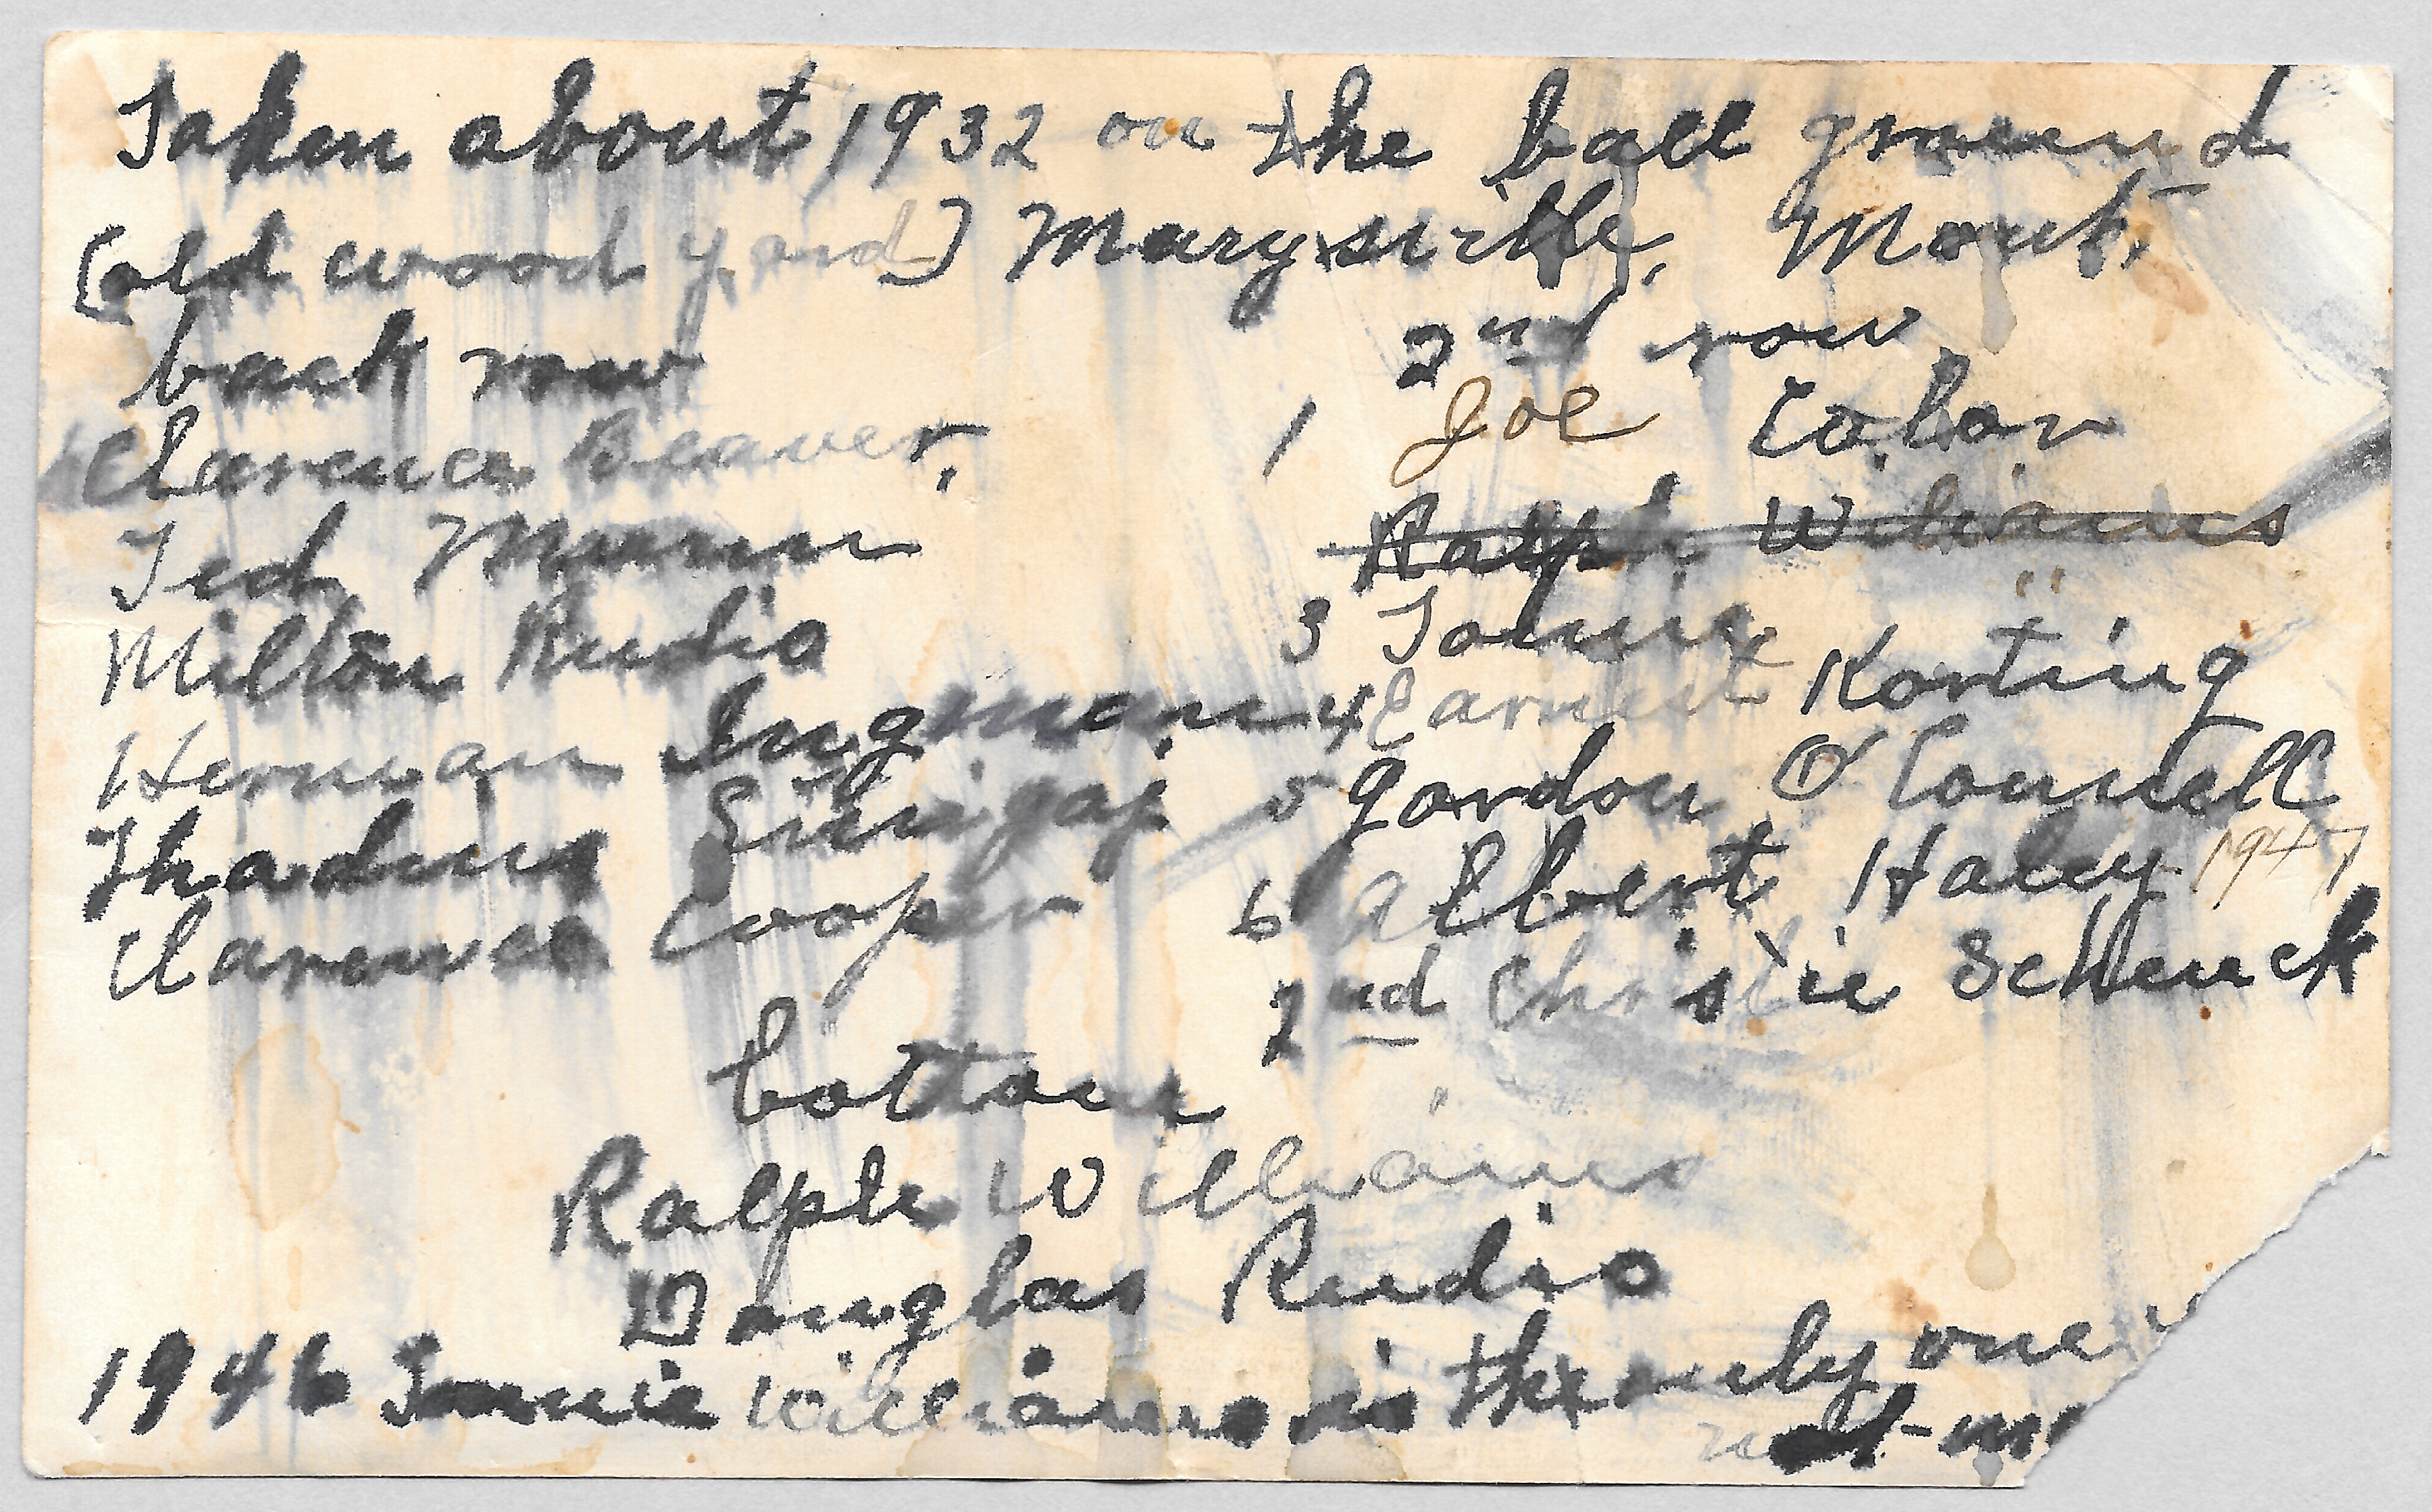 Taken about 1932 on the ball ground
(old wood yard) Marysville, Mont.
back row
Clarence Beaver,
Ted Mann
Milton Rudio
Herman Ingman
Thadius
Clarence Cooper
2nd row
1 Joe
Ralph Williams
3 Tonnie "
4 Earnest Korting
5 Gordon O'Connell
6 Albert Haley 1947
2nd Christie Schenck
bottom
Ralph Williams
Douglas Rudio
1946 Tonnie Williams is the only one
not